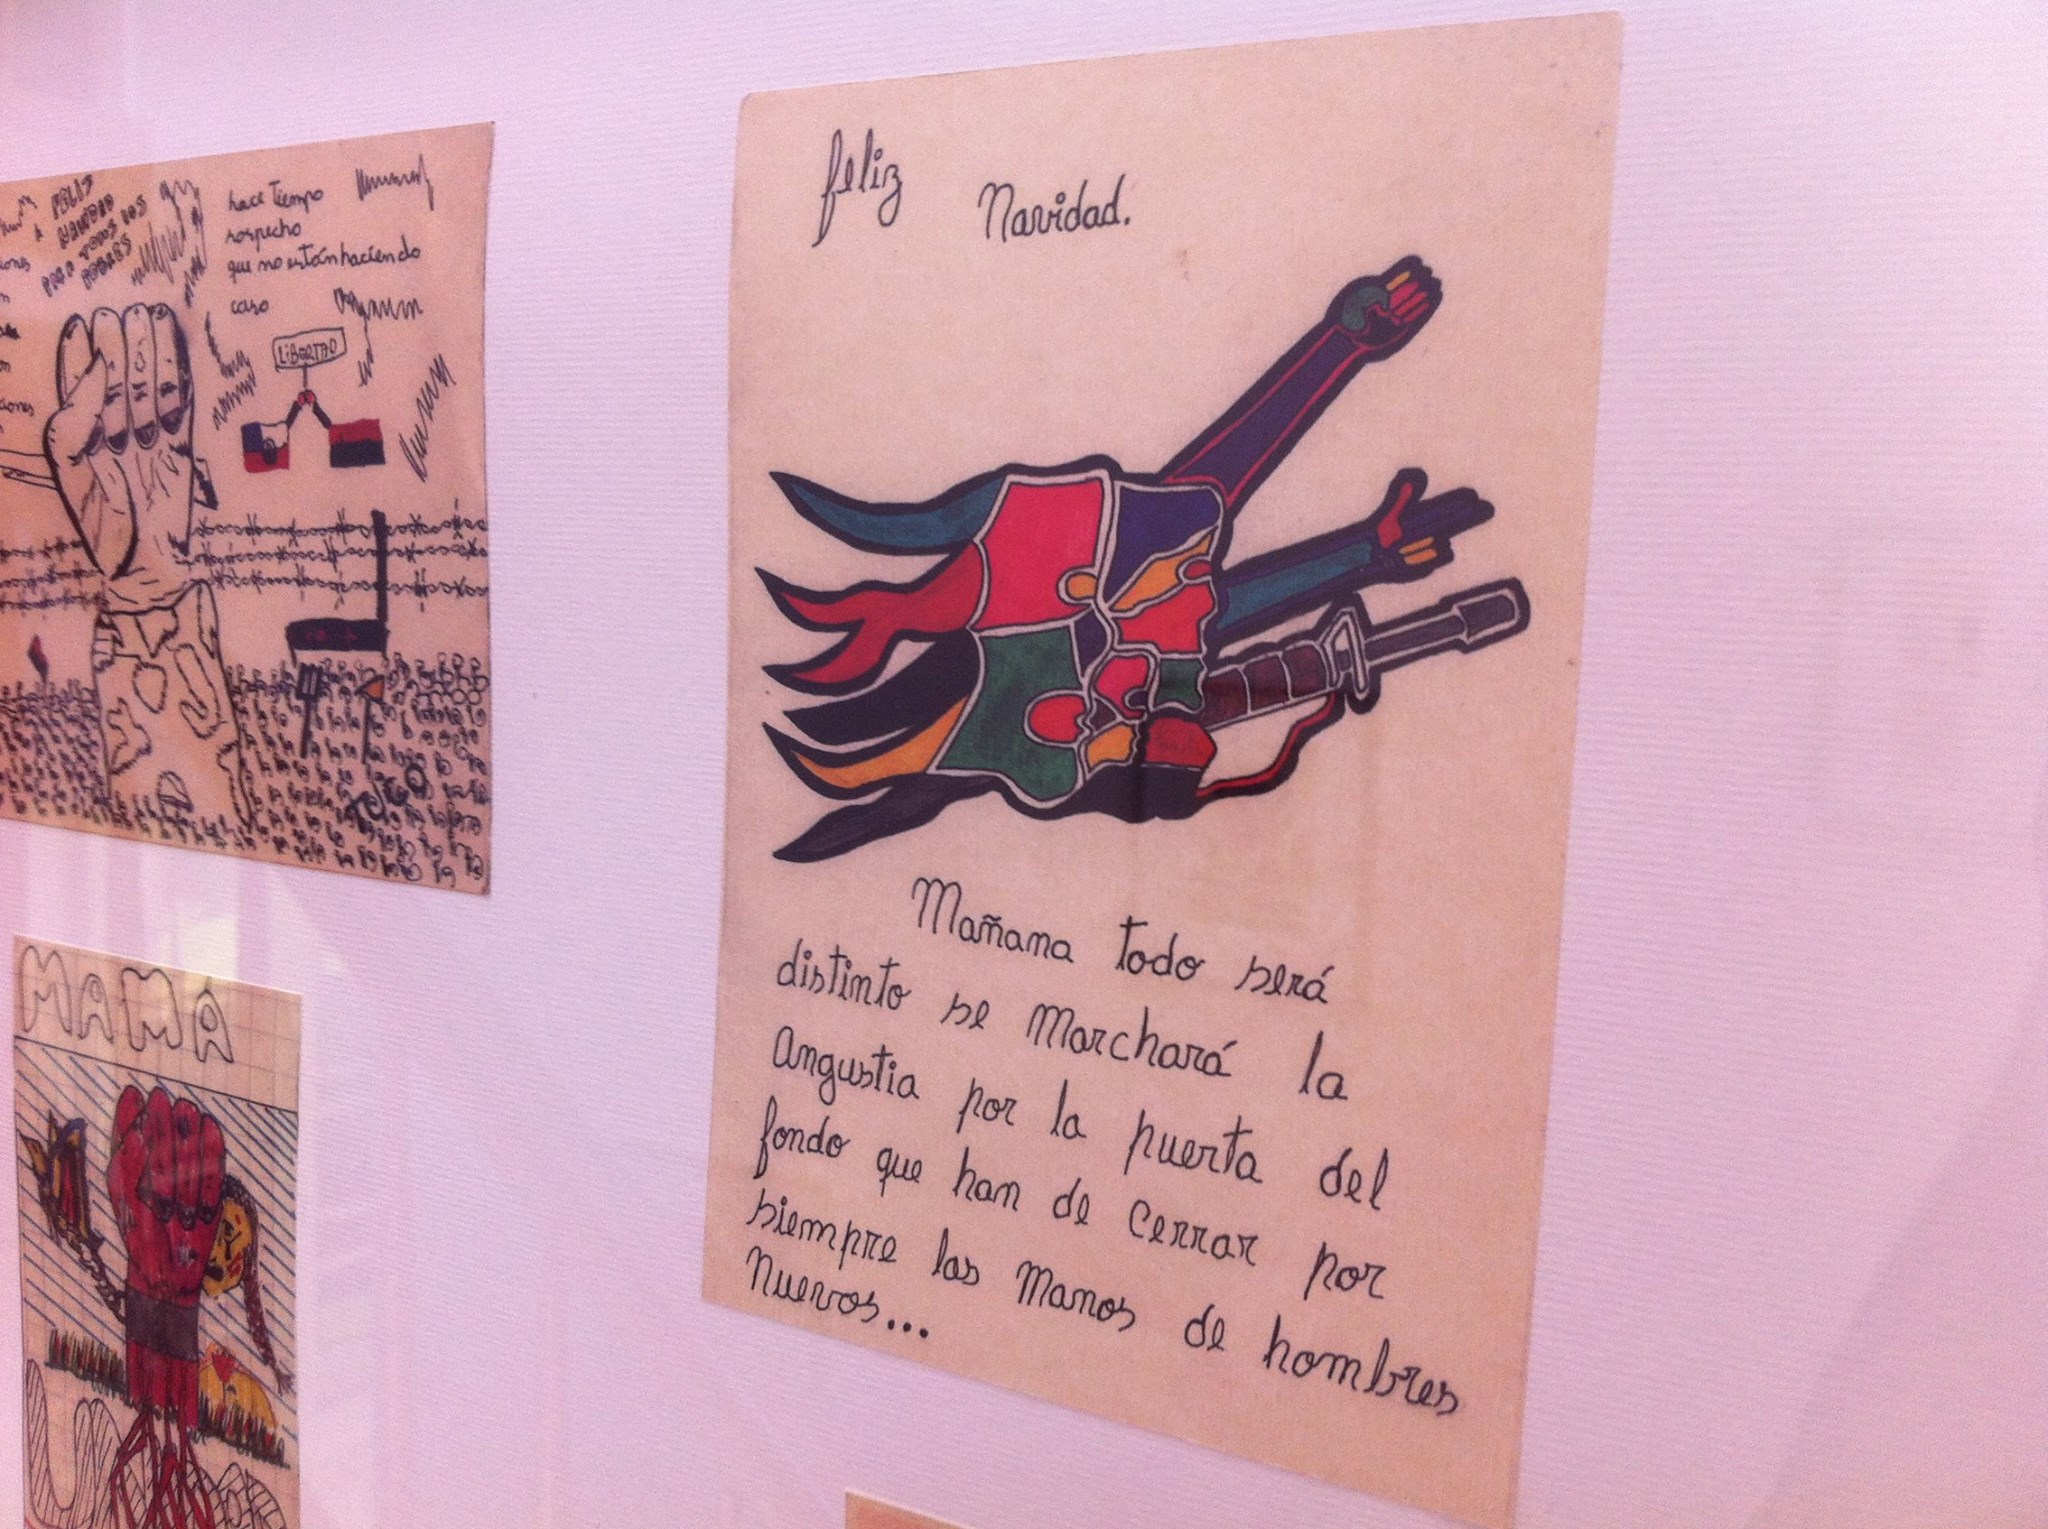 feliz
Navidad.
Mañana todo será
distinto se marchará la
Angustia por la puerta del
fondo que han de cerrar por
siempre las manos de hombres
nuevos...
hace tiempo
sospecho
que no están haciendo
caso
LIBERTAD
FELIZ
NAVIDAD
PARA TODOS LOS
POBRES
iones
ciones
MAMÁ